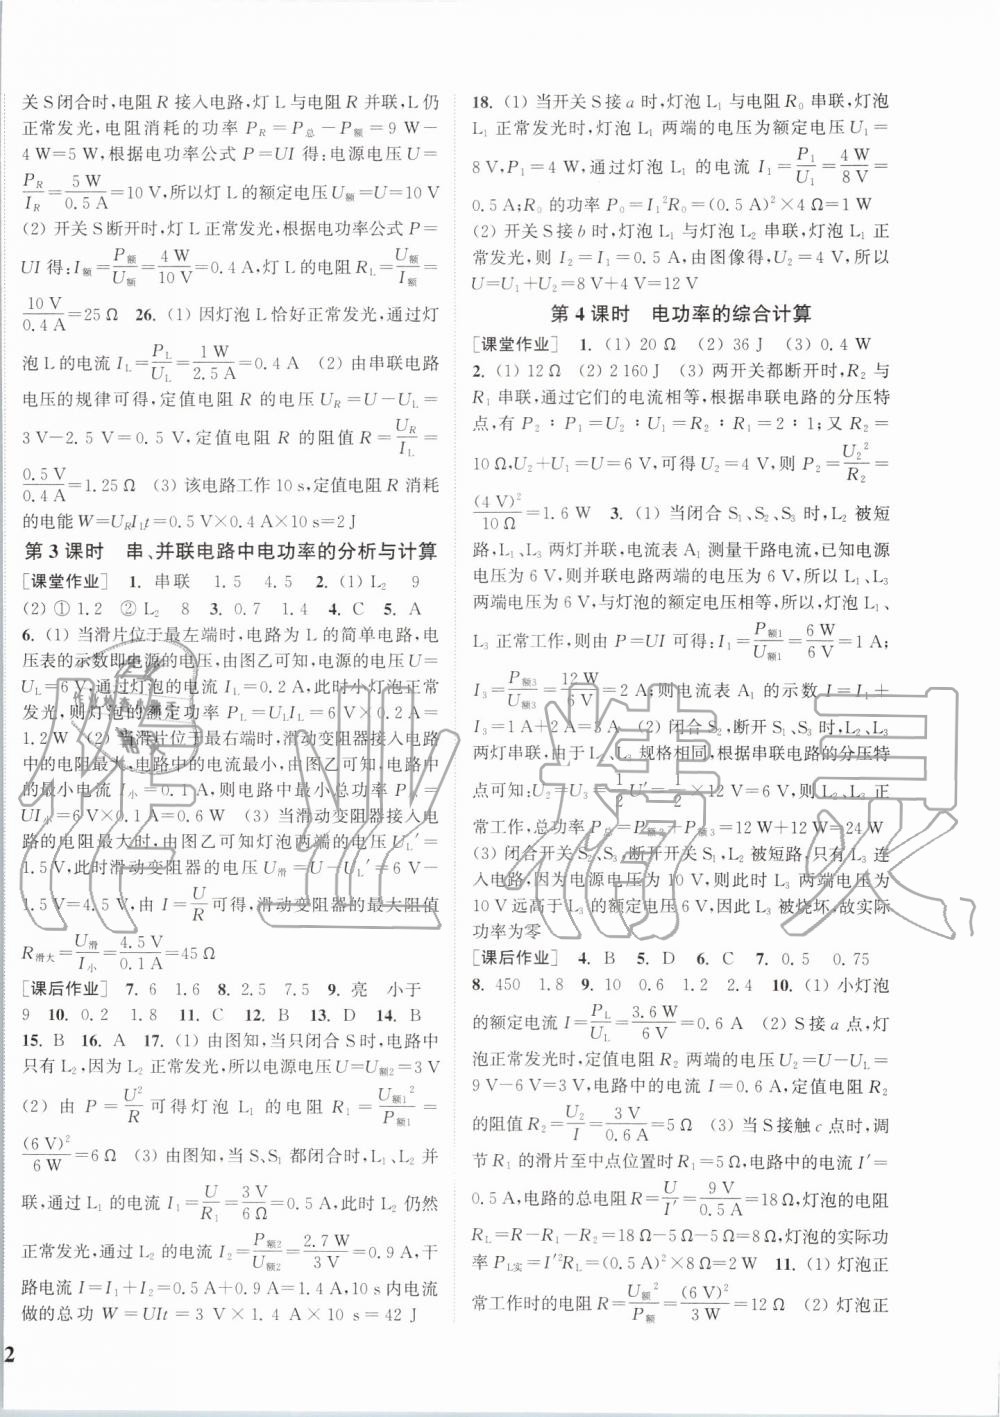 关S闭合时,电阻R接入电路,灯L与电阻R并联,L仍
正常发光,电阻消耗的功率 P_R=P_总-P_额=9 W-
4 W=5 W,根据电功率公式 P=UI 得:电源电压U=
P_R/I_R=5 W/0.5 A=10 V,所以灯L的额定电压U_额=U=10 V
(2) 开关S断开时,灯L正常发光,根据电功率公式P=
UI得:I_额=P_额/U_额=4 W/10 V=0.4 A,灯L的电阻R_L=U_额/I_额=
10 V/0.4 A=25 Ω 26. (1) 因灯泡L恰好正常发光,通过灯
泡L的电流I_L=P_L/U_L=1 W/2.5 A=0.4 A (2) 由串联电路
电压的规律可得,定值电阻R的电压U_R=U-U_L=
3 V-2.5 V=0.5 V,定值电阻R的阻值R=U_R/I_L=
0.5 V/0.4 A=1.25 Ω (3) 该电路工作10 s,定值电阻R消耗
的电能W=U_RI_Lt=0.5 V×0.4 A×10 s=2 J
第3课时 串、并联电路中电功率的分析与计算
[课堂作业] 1. 串联 1.5 4.5 2. (1) L₂ 9
(2) ① 1.2 ② L₂ 8 3. 0.7 1.4 4. C 5. A
6. (1) 当滑片位于最左端时,电路为L的简单电路,电
压表的示数即电源的电压,由图乙可知,电源的电压U=
U_L=6 V,通过灯泡的电流I_L=0.2 A,此时小灯泡正常
发光,则灯泡的额定功率P_L=U_LI_L=6 V×0.2 A=
1.2 W (2) 当滑片位于最右端时,滑动变阻器接入电路
中的电阻最大,电路中的电流最小,由图乙可知,电路中
的最小电流I_小=0.1 A,则电路中最小总功率P_小=
UI_小=6 V×0.1 A=0.6 W (3) 当滑动变阻器接入电
路的电阻最大时,由图乙可知灯泡两端的电压U_L′=
1.5 V,此时滑动变阻器的电压U_滑=U-U_L′=6 V-
1.5 V=4.5 V,由I=U/R可得,滑动变阻器的最大阻值
R_滑大=U_滑/I_小=4.5 V/0.1 A=45 Ω
[课后作业] 7. 6 1.6 8. 2.5 7.5 9. 亮 小于
9 10. 0.2 1.8 11. C 12. B 13. D 14. B
15. B 16. A 17. (1) 由图知,当只闭合S时,电路中
只有L₂,因为L₂正常发光,所以电源电压U=U_额2=3 V
(2) 由P=U²/R可得灯泡L₁的电阻R₁=U_额1²/P_额1=
(6 V)²/6 W=6 Ω (3) 由图知,当S、S₁都闭合时,L₁、L₂并
联,通过L₁的电流I₁=U/R₁=3 V/6 Ω=0.5 A,此时L₂仍然
正常发光,通过L₂的电流I₂=P_额2/U_额2=2.7 W/3 V=0.9 A,干
路电流I=I₁+I₂=0.5 A+0.9 A=1.4 A,10 s内电流
做的总功W=UIt=3 V×1.4 A×10 s=42 J
2
18. (1) 当开关S接a时,灯泡L₁与电阻R₀串联,灯泡
L₁正常发光,灯泡L₁两端的电压为额定电压U₁=
8 V,P₁=4 W,通过灯泡L₁的电流I₁=P₁/U₁=4 W/8 V=
0.5 A;R₀的功率P₀=I₁²R₀=(0.5 A)²×4 Ω=1 W
(2) 开关S接b时,灯泡L₁与灯泡L₂串联,灯泡L₁正
常发光,则I₂=I₁=0.5 A,由图像得,U₂=4 V,所以
U=U₁+U₂=8 V+4 V=12 V
第4课时 电功率的综合计算
[课堂作业] 1. (1) 20 Ω (2) 36 J (3) 0.4 W
2. (1) 12 Ω (2) 2 160 J (3) 两开关都断开时,R₂与
R₁串联,通过它们的电流相等,根据串联电路的分压特
点,有P₂∶P₁=U₂∶U₁=R₂∶R₁=2∶1;又R₂=
10 Ω,U₂+U₁=U=6 V,可得U₂=4 V,则P₂=U₂²/R₂=
(4 V)²/10 Ω=1.6 W 3. (1) 当闭合S₁、S₂、S₃时,L₂被短
路,L₁、L₃两灯并联,电流表A₁测量干路电流,已知电源
电压为6 V,则并联电路两端的电压为6 V,所以L₁、L₃
两端电压为6 V,与灯泡的额定电压相等,所以灯泡L₁、
L₃正常工作,则由P=UI可得:I₁=P_额1/U_额1=6 W/6 V=1 A;
I₃=P_额3/U_额3=12 W/6 V=2 A;则电流表A₁的示数I=I₁+
I₃=1 A+2 A=3 A (2) 闭合S₂、断开S₁、S₃时,L₂、L₃
两灯串联,由于L₂、L₃规格相同,根据串联电路的分压特
点可知:U₂=U₃=1/2U′=1/2×12 V=6 V,则L₂、L₃正
常工作,总功率P_总=P_额2+P_额3=12 W+12 W=24 W
(3) 闭合开关S₂、S₃,断开开关S₁,L₂被短路,只有L₃连
入电路,因为电源电压为10 V,则此时L₃两端电压为
10 V远高于L₃的额定电压6 V,因此L₃被烧坏,故实际
功率为零
[课后作业] 4. B 5. D 6. C 7. 0.5 0.75
8. 450 1.8 9. 10 0.6 1.2 2.4 10. (1) 小灯泡
的额定电流I=P_L/U_L=3.6 W/6 V=0.6 A (2) S接a点,灯
泡正常发光时,定值电阻R₂两端的电压U₂=U-U_L=
9 V-6 V=3 V,电路中的电流I=0.6 A,定值电阻R₂
的阻值R₂=U₂/I=3 V/0.6 A=5 Ω (3) 当S接触c点时,调
节R₁的滑片至中点位置时R₁=5 Ω,电路中的电流I′=
0.5 A,电路的总电阻R=U/I′=9 V/0.5 A=18 Ω,灯泡的电阻
R_L=R-R₁-R₂=18 Ω-5 Ω-5 Ω=8 Ω,灯泡的实际功
率P_L实=I′²R_L=(0.5 A)²×8 Ω=2 W 11. (1) 灯泡正
常工作时的电阻R=U_额²/P_额=(6 V)²/3 W=12 Ω (2) 灯泡正
作业精灵